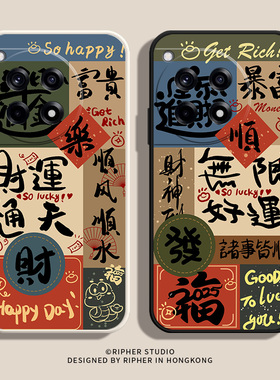 So happy!
富貴
Get Rich!
樂
順風順水
財運
So lucky!
通天
財
Happy Day!
Get Rich!
暴富
順
無限
So lucky!
好運
財神
發
諸事皆順
福
2025
Good
To
luck
you!
©RIPHER STUDIO
DESIGNED BY RIPHER IN HONGKONG